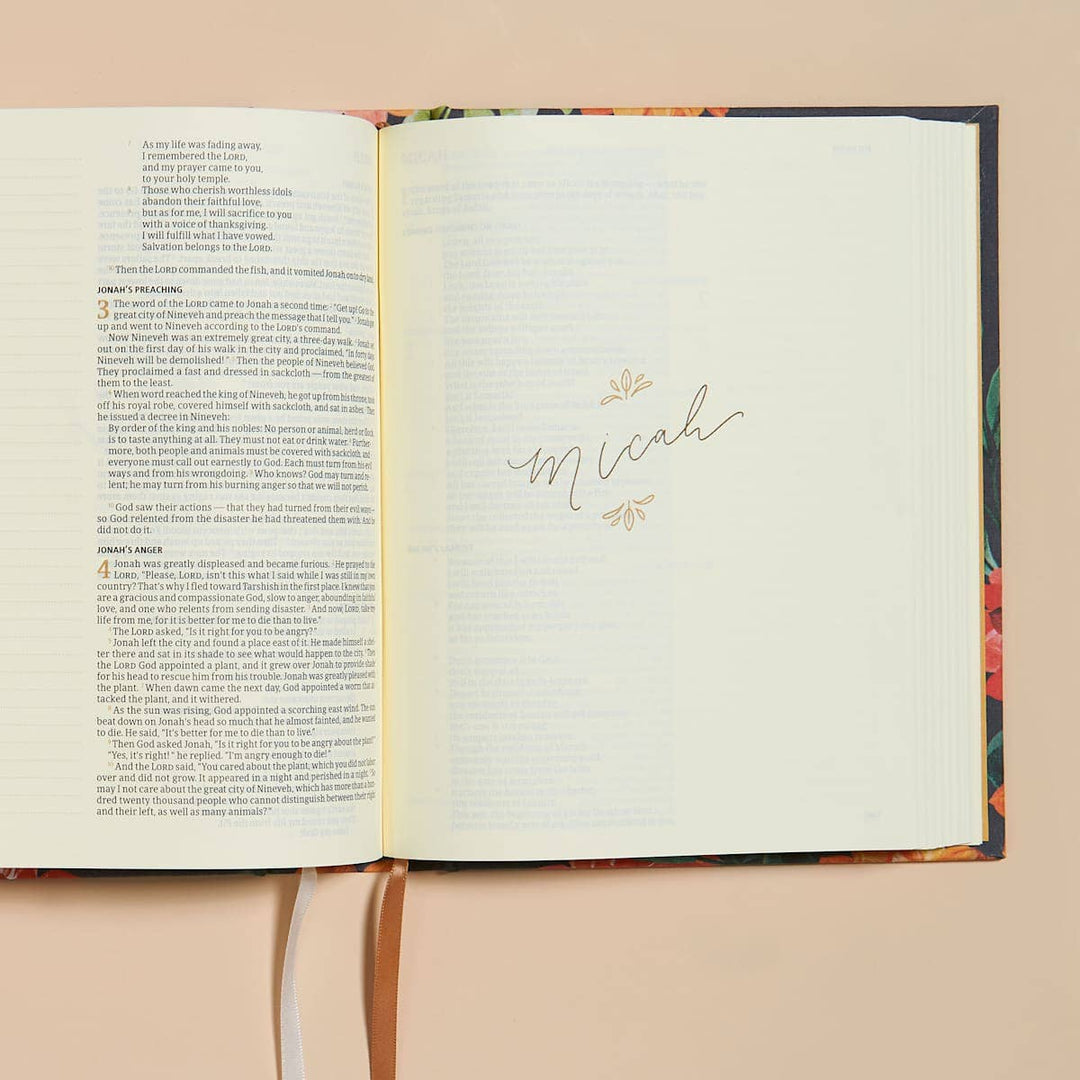 7 As my life was fading away,
I remembered the LORD,
and my prayer came to you,
to your holy temple.
8 Those who cherish worthless idols
abandon their faithful love,
9 but as for me, I will sacrifice to you
with a voice of thanksgiving.
I will fulfill what I have vowed.
Salvation belongs to the LORD.
10 Then the LORD commanded the fish, and it vomited Jonah onto dry land.
JONAH'S PREACHING
3 The word of the LORD came to Jonah a second time: 2 "Get up! Go to the
great city of Nineveh and preach the message that I tell you." 3 Jonah got
up and went to Nineveh according to the LORD's command.
Now Nineveh was an extremely great city, a three-day walk. 4 Jonah set
out on the first day of his walk in the city and proclaimed, "In forty days
Nineveh will be demolished!" 5 Then the people of Nineveh believed God.
They proclaimed a fast and dressed in sackcloth — from the greatest of
them to the least.
6 When word reached the king of Nineveh, he got up from his throne, took
off his royal robe, covered himself with sackcloth, and sat in ashes. 7 Then
he issued a decree in Nineveh:
By order of the king and his nobles: No person or animal, herd or flock,
is to taste anything at all. They must not eat or drink water. 8 Further-
more, both people and animals must be covered with sackcloth, and
everyone must call out earnestly to God. Each must turn from his evil
ways and from his wrongdoing. 9 Who knows? God may turn and re-
lent; he may turn from his burning anger so that we will not perish.
10 God saw their actions — that they had turned from their evil ways —
so God relented from the disaster he had threatened them with. And he
did not do it.
JONAH'S ANGER
4 Jonah was greatly displeased and became furious. 2 He prayed to the
LORD, "Please, LORD, isn't this what I said while I was still in my own
country? That's why I fled toward Tarshish in the first place. I knew that you
are a gracious and compassionate God, slow to anger, abounding in faithful
love, and one who relents from sending disaster. 3 And now, LORD, take my
life from me, for it is better for me to die than to live."
4 The LORD asked, "Is it right for you to be angry?"
5 Jonah left the city and found a place east of it. He made himself a shel-
ter there and sat in its shade to see what would happen to the city. 6 Then
the LORD God appointed a plant, and it grew over Jonah to provide shade
for his head to rescue him from his trouble. Jonah was greatly pleased with
the plant. 7 When dawn came the next day, God appointed a worm that at-
tacked the plant, and it withered.
8 As the sun was rising, God appointed a scorching east wind. The sun
beat down on Jonah's head so much that he almost fainted, and he wanted
to die. He said, "It's better for me to die than to live."
9 Then God asked Jonah, "Is it right for you to be angry about the plant?"
"Yes, it's right!" he replied. "I'm angry enough to die!"
10 And the LORD said, "You cared about the plant, which you did not labor
over and did not grow. It appeared in a night and perished in a night. 11 So
may I not care about the great city of Nineveh, which has more than a hun-
dred twenty thousand people who cannot distinguish between their right
and their left, as well as many animals?"
Micah